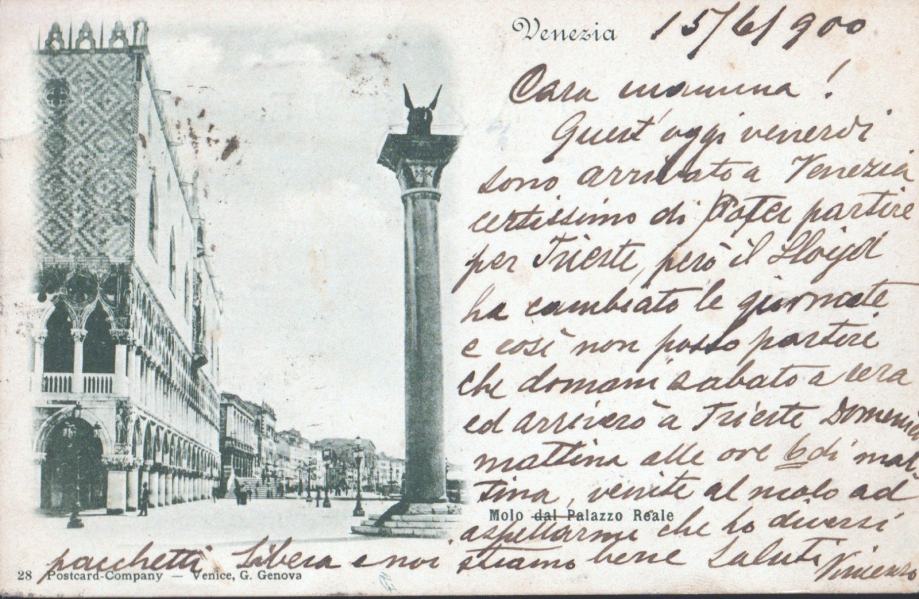 Venezia 15/6/900
Cara mamma!
Quest'oggi venerdi
sono arrivato a Venezia
certissimo di poter partire
per Trieste, però il Lloyd
ha cambiato le giornate
e così non posso partire
che domani sabato a sera
ed arriverò a Trieste Domenica
mattina alle ore 6 di mat
tina, venite al molo ad
Molo dal Palazzo Reale
aspettarmi che ho diversi
pacchetti. Libera e noi stiamo bene Saluti Vincenzo
28 Postcard-Company — Venice, G. Genova